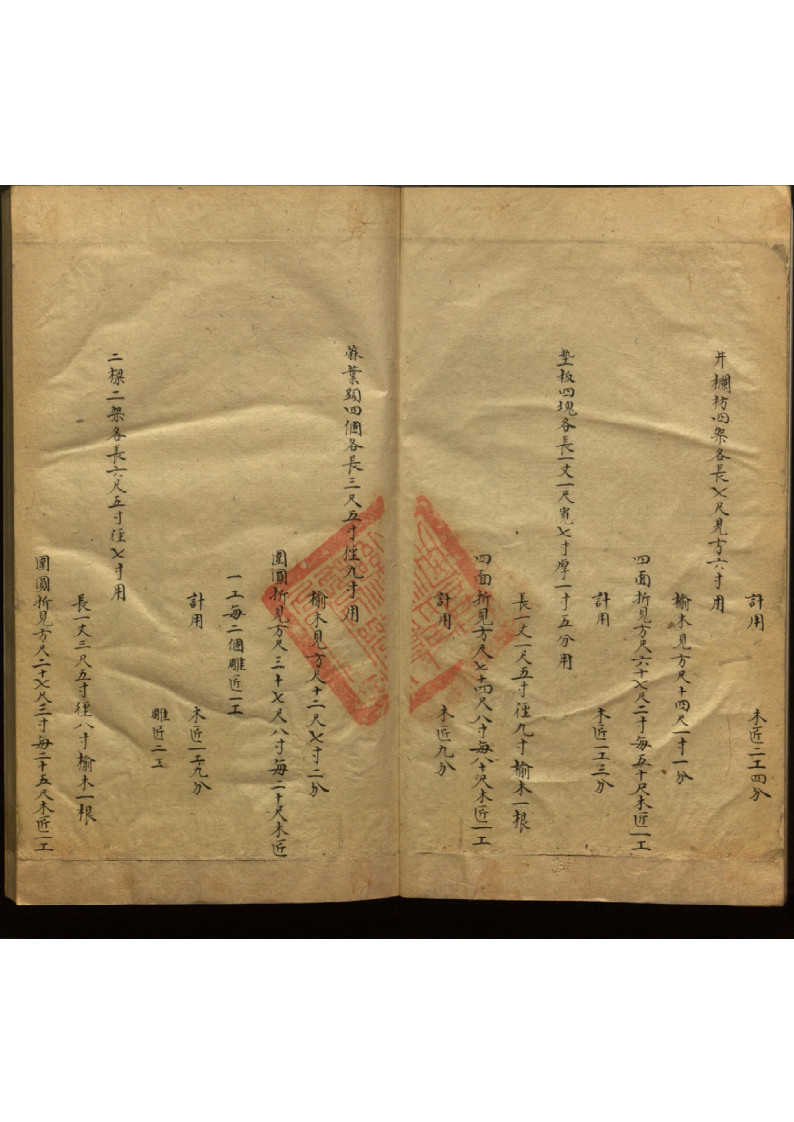 計用 木匠二工四分
井欄枋四架各長七尺見方六寸用
榆木見方尺十四尺一寸一分
四面折見方尺六十七尺二寸每五十尺木匠一工
計用 木匠一工三分
墊板四塊各長一丈一尺寬七寸厚一寸五分用
長一丈一尺五寸徑九寸榆木一根
四面折見方尺七十四尺八寸每八十尺木匠一工
計用 木匠九分
蔴葉頭四個各長三尺五寸徑九寸用
榆木見方尺十二尺七寸二分
圍圓折見方尺三十七尺八寸每二十尺木匠
一工每二個雕匠一工
計用 木匠一工九分
雕匠二工
二樑二架各長六尺五寸徑七寸用
長一丈三尺五寸徑八寸榆木一根
圍圓折見方尺二十七尺三寸每二十五尺木匠一工